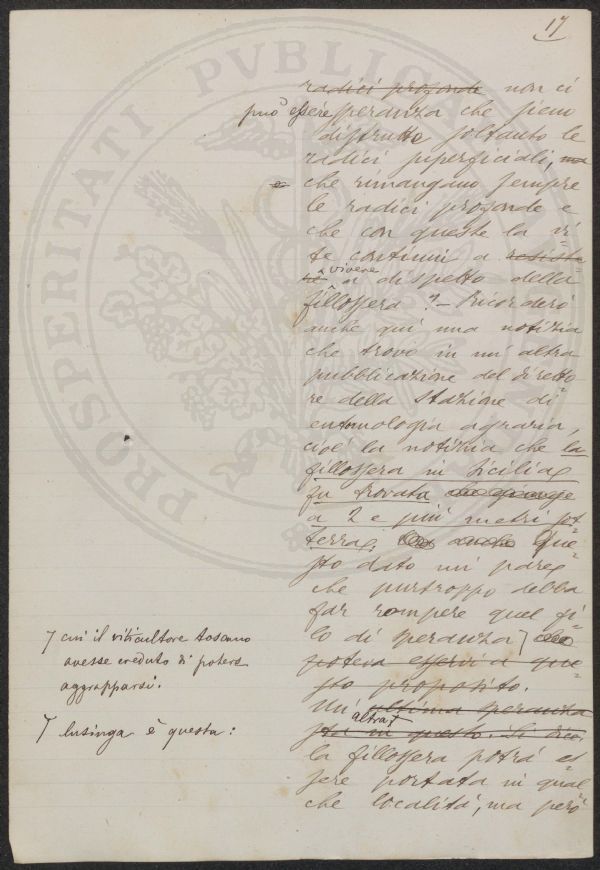 17
radici profonde non ci
può essere speranza che sieno
distrutte soltanto le
radici superficiali, ma
e che rimangano sempre
le radici profonde e
che con queste la vi-
te continui a resiste-
re vivere a dispetto della
fillossera? - Ricorderò
anche qui una notizia
che trovo in un'altra
pubblicazione del diretto-
re della Stazione di
entomologia agraria,
cioè la notizia che la
fillossera in Sicilia
fu trovata che giunge
a 2 e più metri sot-
terra; anche Que-
sto dato mi pare
che purtroppo debba
far rompere quel fi-
lo di speranza ⌉ che
poteva esservi a que-
sto proposito.
Un' ultima speranza
altra ⌈
sta in questo. Si dice,
la fillossera potrà es-
sere portata in qual-
che località, ma però
⌉ cui il viticultore toscano
avesse creduto di potersi
aggrapparsi.
⌈ lusinga è questa:
PROSPERITATI PVBLICAE